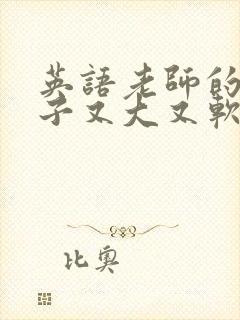 英語老師的
子又大又軟
比奧